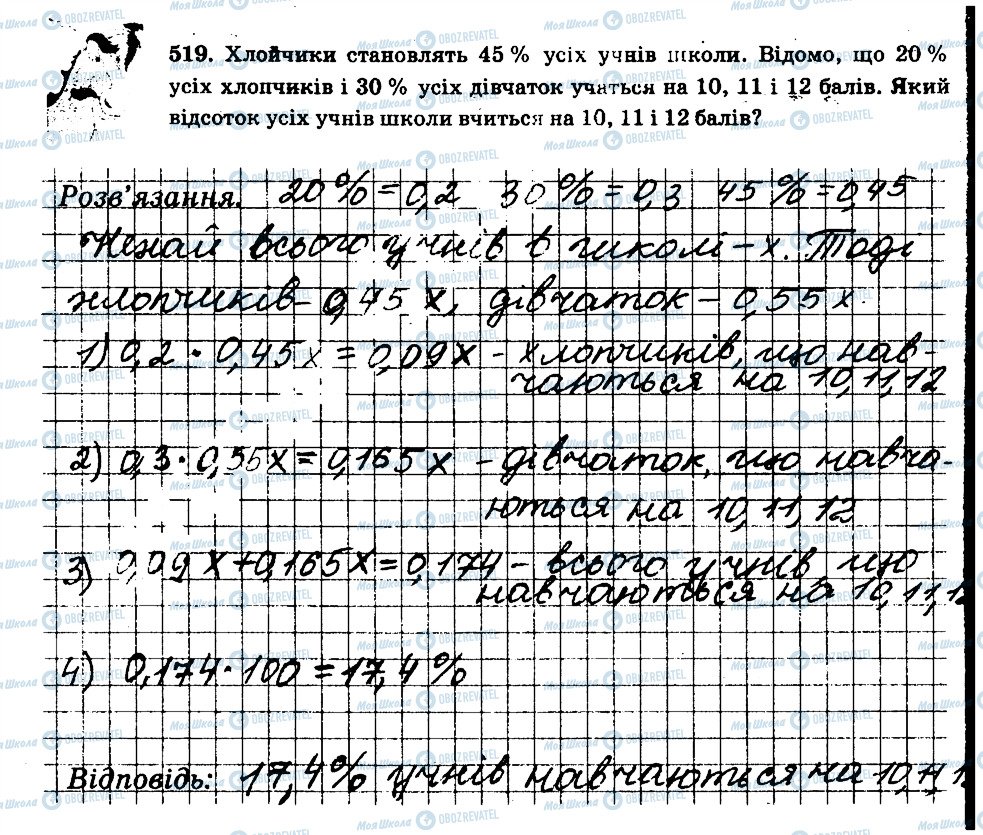 519. Хлойчики становлять 45 % усіх учнів школи. Відомо, що 20 %
усіх хлопчиків і 30 % усіх дівчаток учаться на 10, 11 і 12 балів. Який
відсоток усіх учнів школи вчиться на 10, 11 і 12 балів?
Розв'язання. 20% = 0,2 30% = 0,3 45% = 0,45
Нехай всього учнів в школі – х. Тоді
хлопчиків – 0,45 х, дівчаток – 0,55х
1) 0,2 · 0,45х = 0,09х – хлопчиків, що нав-
чаються на 10,11,12
2) 0,3 · 0,55х = 0,165х – дівчаток, що навча-
ються на 10,11,12
3) 0,09х + 0,165х = 0,174 – всього учнів що
навчаються на 10,11,12
4) 0,174 · 100 = 17,4%
Відповідь: 17,4% учнів навчаються на 10,11,1